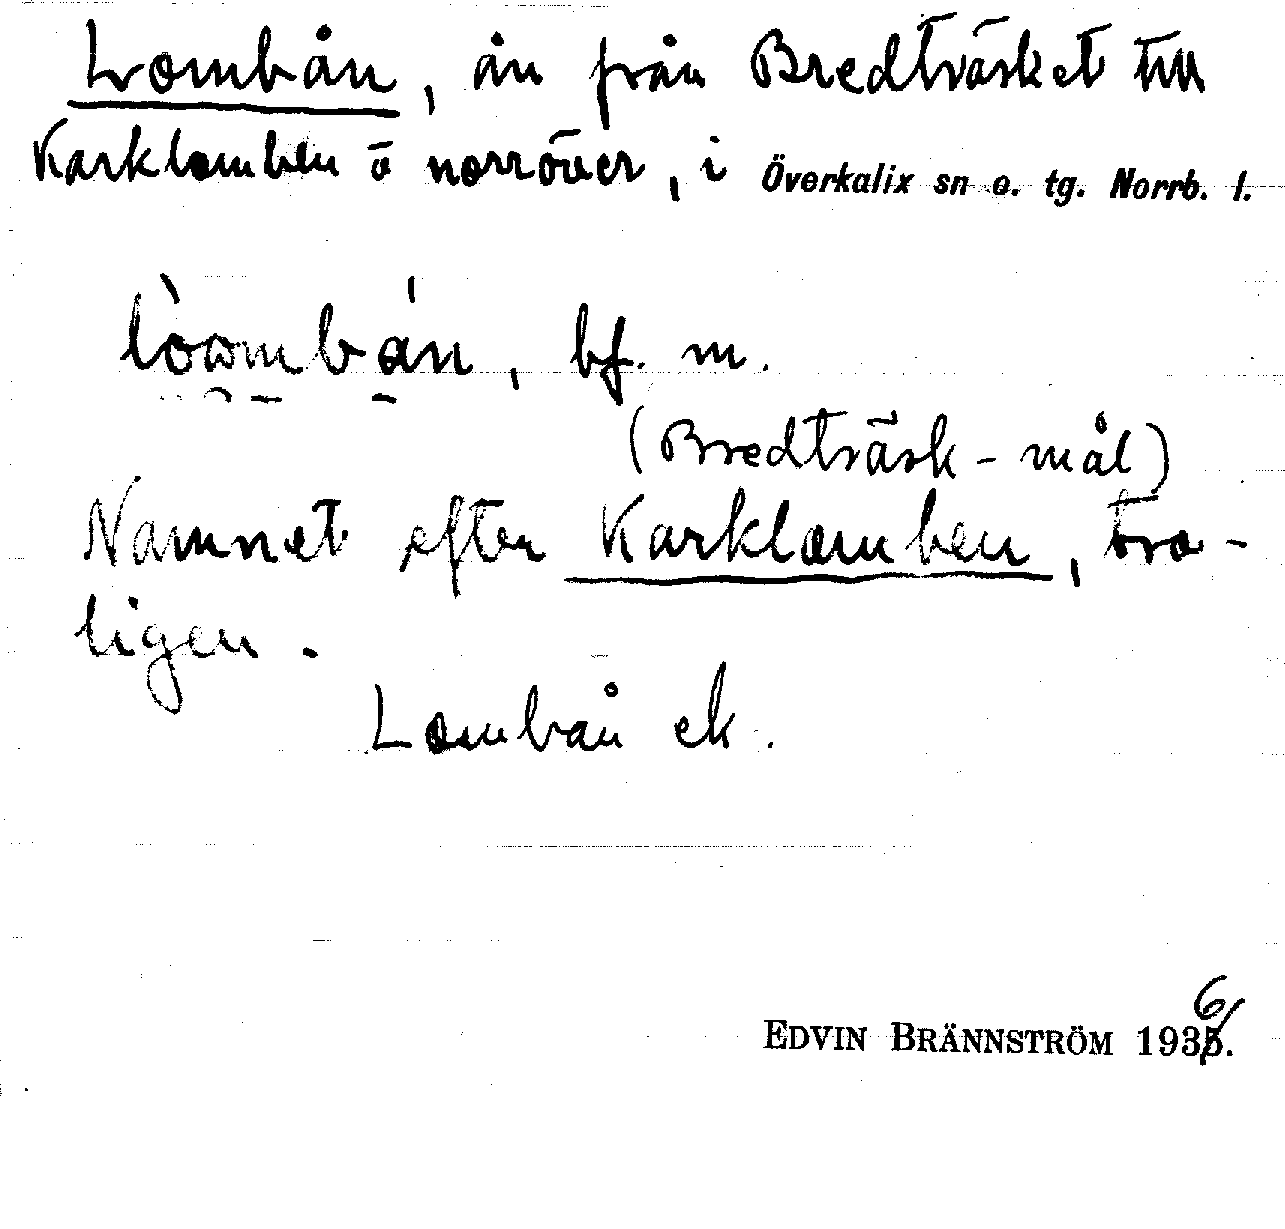 Lombån, ån från Bredträsket till
Karklomben ö norröver, i Överkalix sn o. tg. Norrb. l.
bf. m.
(Bredträsk-mål)
Namnet efter Karklomben, tro-
ligen.
Lombån ek.
EDVIN BRÄNNSTRÖM 1936.